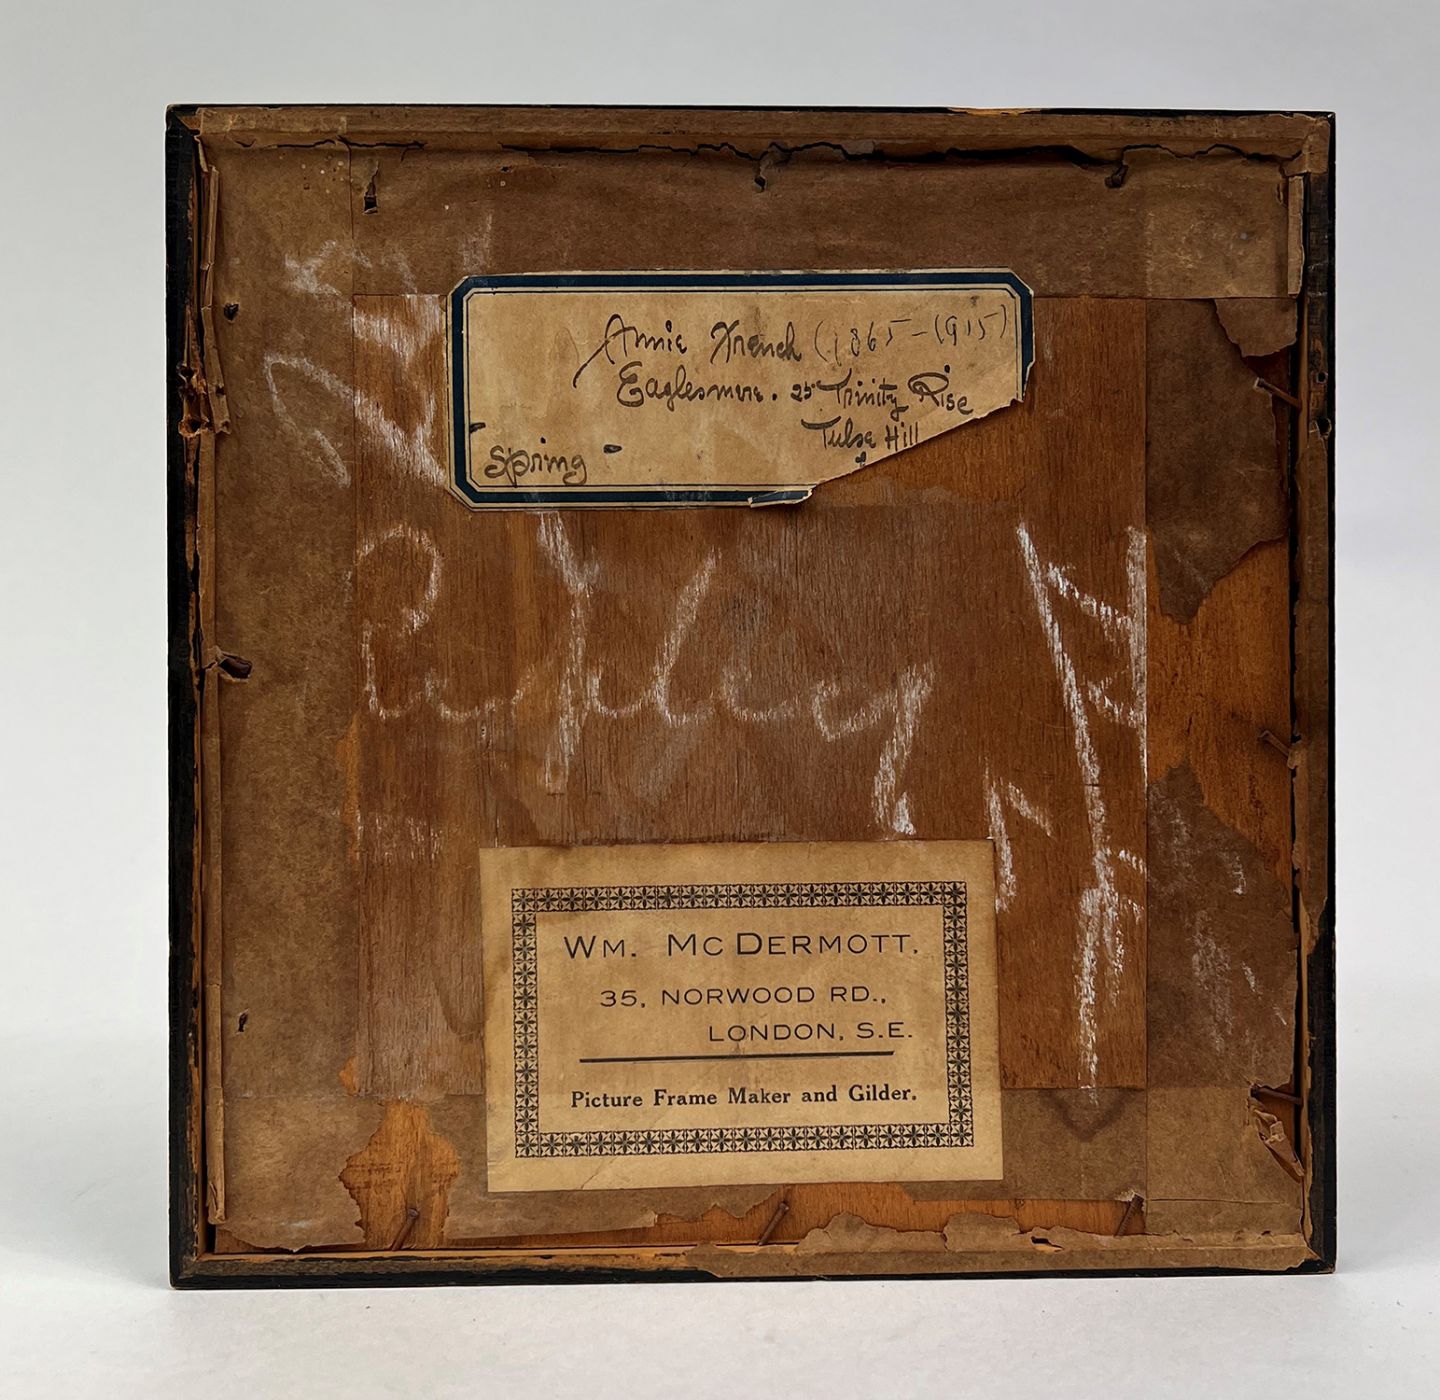 Annie French (1865-1915)
Eaglesmere. 25 Trinity Rise
Tulse Hill
Spring
WM. MCDERMOTT.
35, NORWOOD RD.,
LONDON, S.E.
Picture Frame Maker and Gilder.